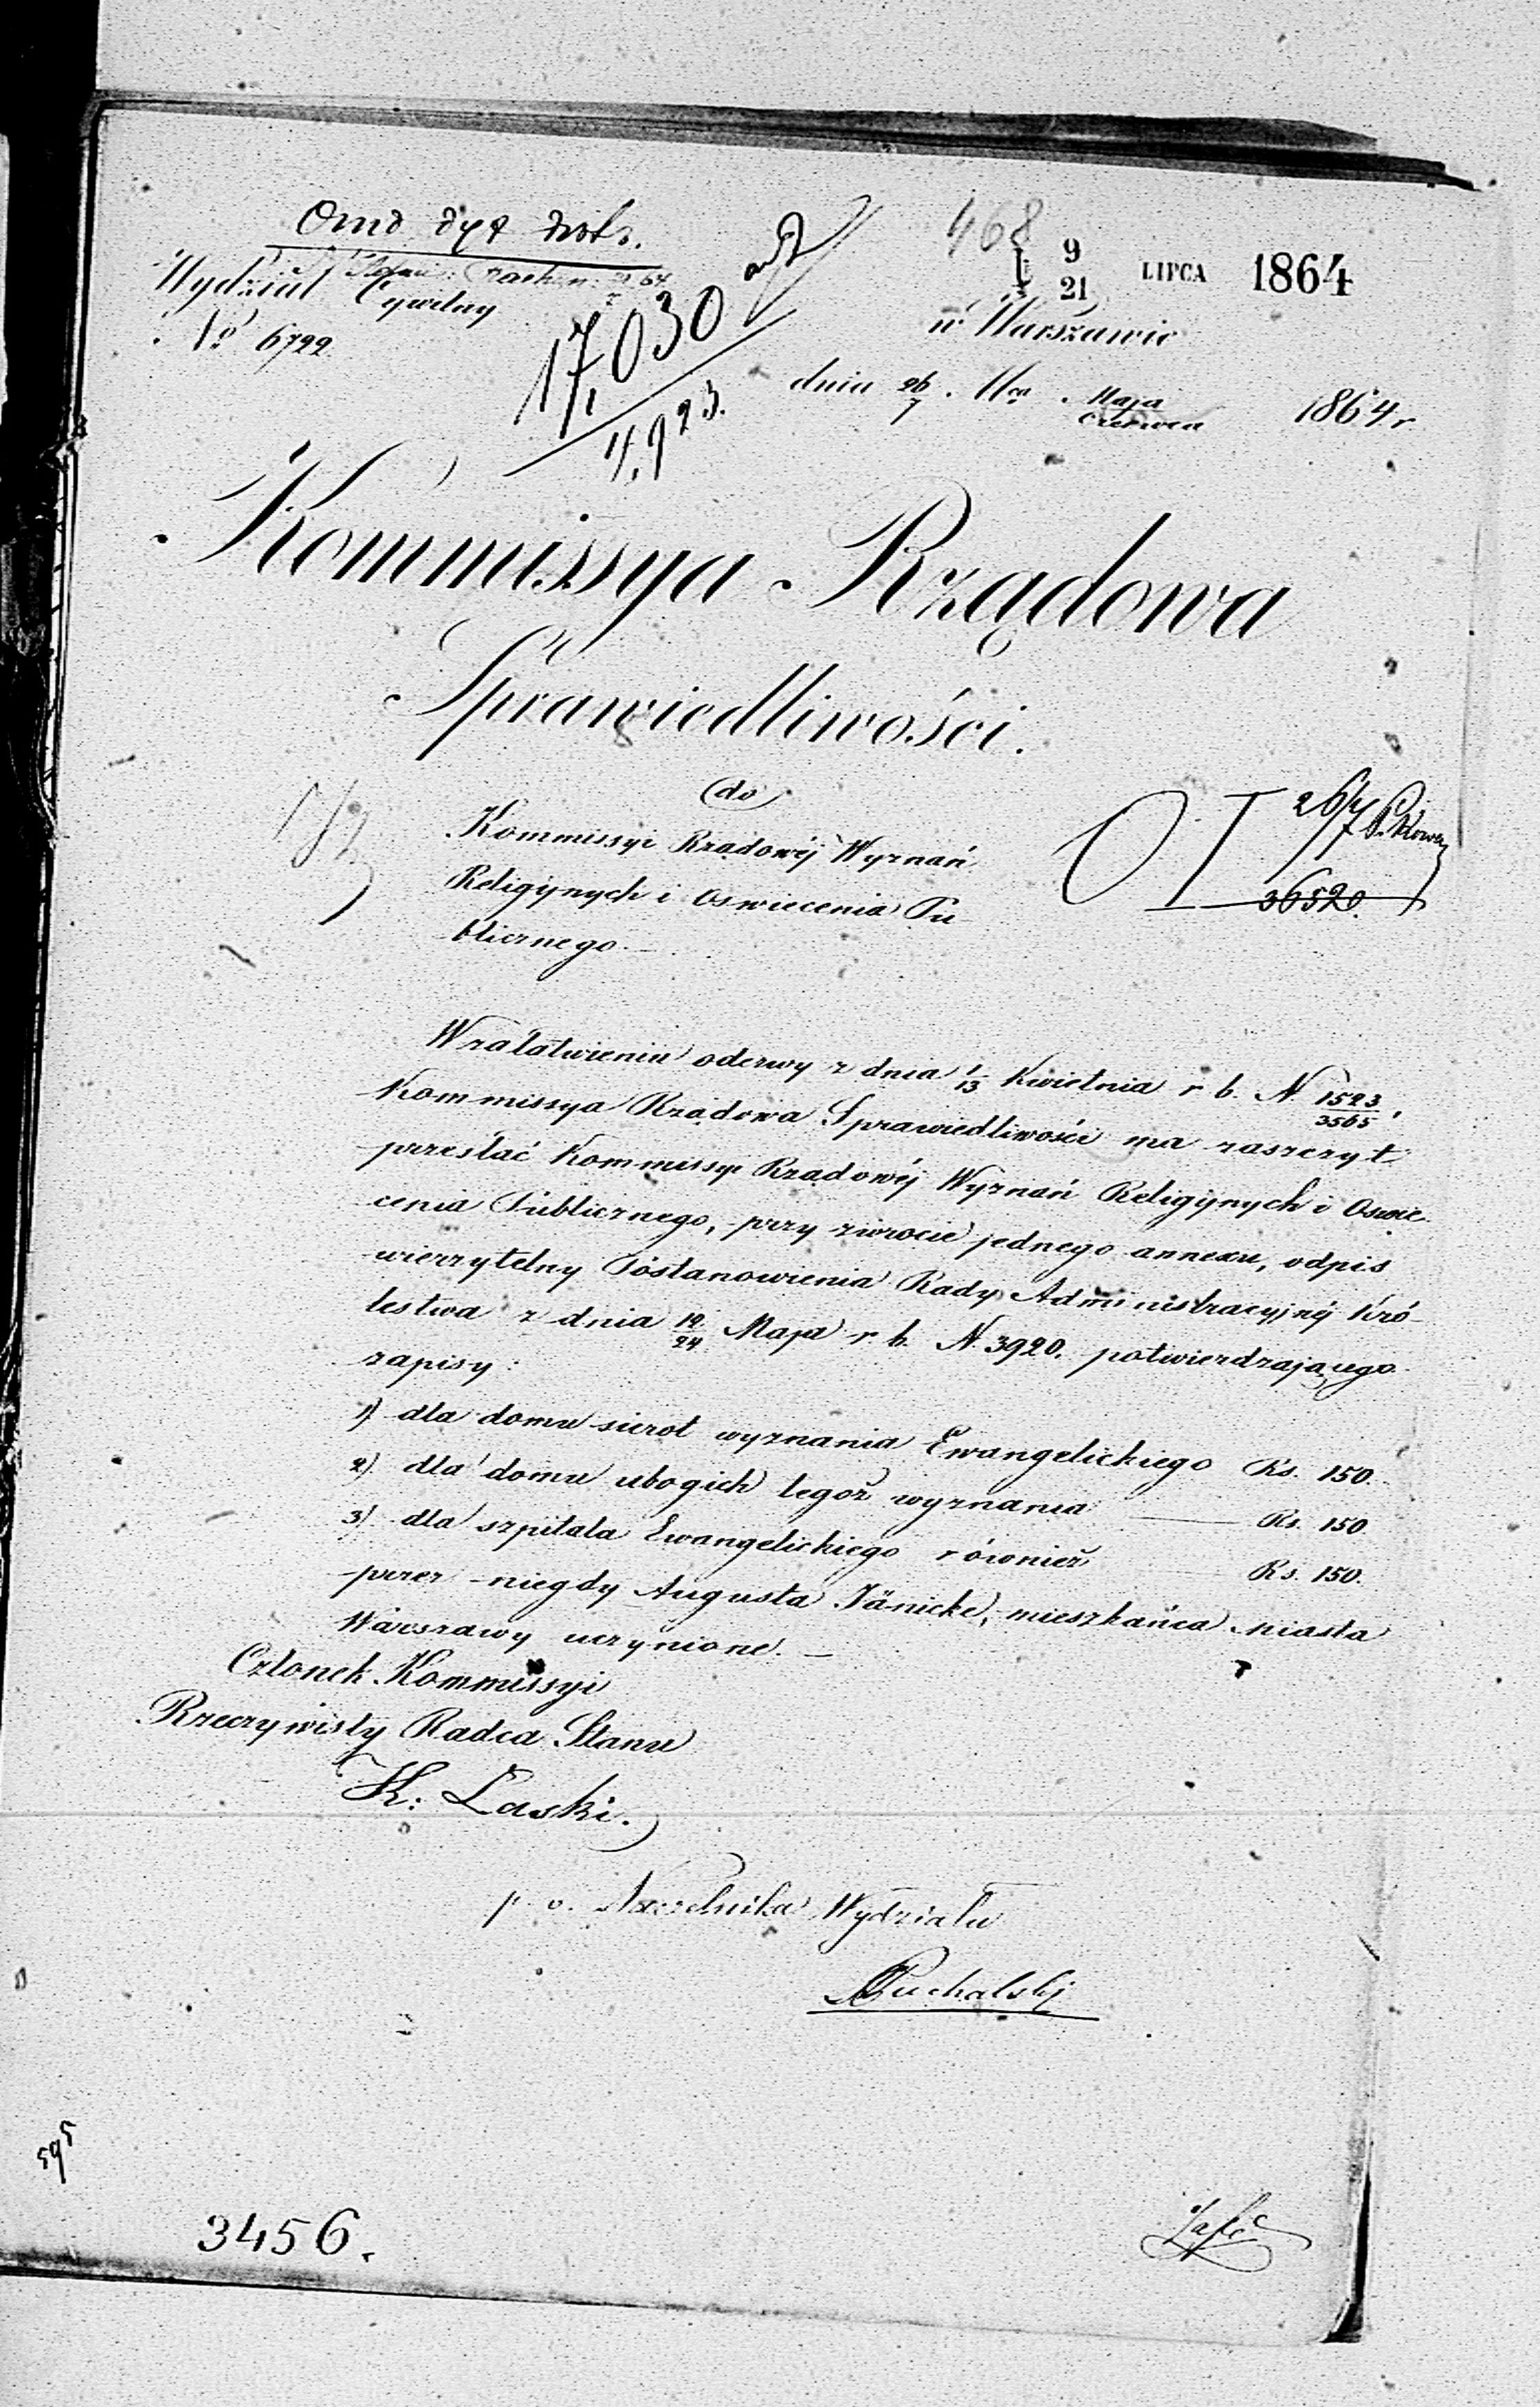 468
9
21 LIPCA 1864
Wydział Cywilny
No 6722
17,030
4,923.
w Warszawie
dnia 26/7 Mca Maja/Czerwca 1864 r
Kommissya Rządowa
Sprawiedliwości.
do
Kommissyi Rządowéj Wyznań
Religijnych i Oswiecenia Pu-
blicznego.
26/7
36520.
W załatwieniu odezwy z dnia 1/13 Kwietnia r b. N. 1523/3565,
Kommissya Rządowa Sprawiedliwości ma zaszczyt
przesłać Kommissyi Rządowéj Wyznań Religijnych i Oswie-
cenia Publicznego, przy zwrocie jednego annexu, odpis
wierzytelny Postanowienia Rady Administracyjnéj Kró-
lestwa z dnia 12/24 Maja r. b. N. 3920. potwierdzającego
zapisy:
1) dla domu sierot wyznania Ewangelickiego Rs. 150.
2) dla domu ubogich tegoż wyznania — Rs. 150.
3) dla szpitala Ewangelickiego również Rs. 150.
przez niegdy Augusta Jänicke, mieszkańca miasta
Warszawy uczynione. —
Członek Kommissyi
Rzeczywisty Radca Stanu
K: Laski.
p. o. Naczelnika Wydziału
Puchalski
595
3456.